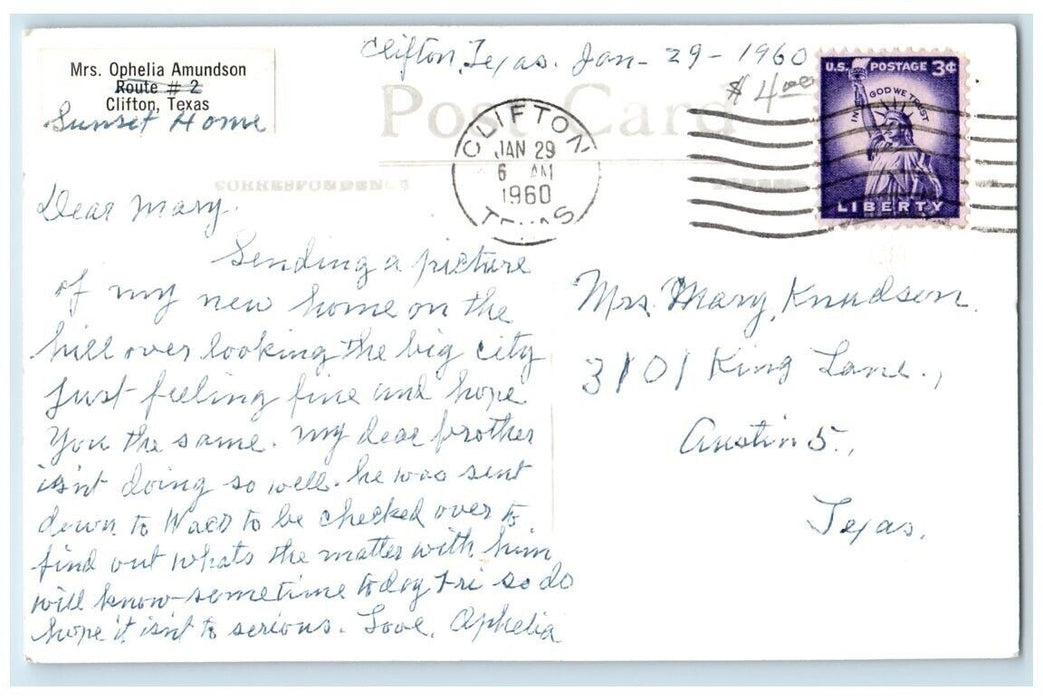 Clifton, Texas. Jan- 29- 1960
Mrs. Ophelia Amundson
Route # 2
Clifton, Texas
Sunset Home
Post Card
$ 4
CORRESPONDENCE
CLIFTON
JAN 29
6 AM
1960
TEXAS
U.S. POSTAGE 3¢
IN GOD WE TRUST
LIBERTY
Dear Mary.
Sending a picture
of my new home on the
hill over looking the big city
Just feeling fine and hope
You the same. My dear brother
isn't doing so well. he was sent
down to Waco to be checked over to
find out whats the matter with him
will know sometime today Fri so do
hope it isn't to serious. Love, Ophelia
Mrs. Mary Knudson.
3101 King Lane.,
Austin 5.,
Texas.